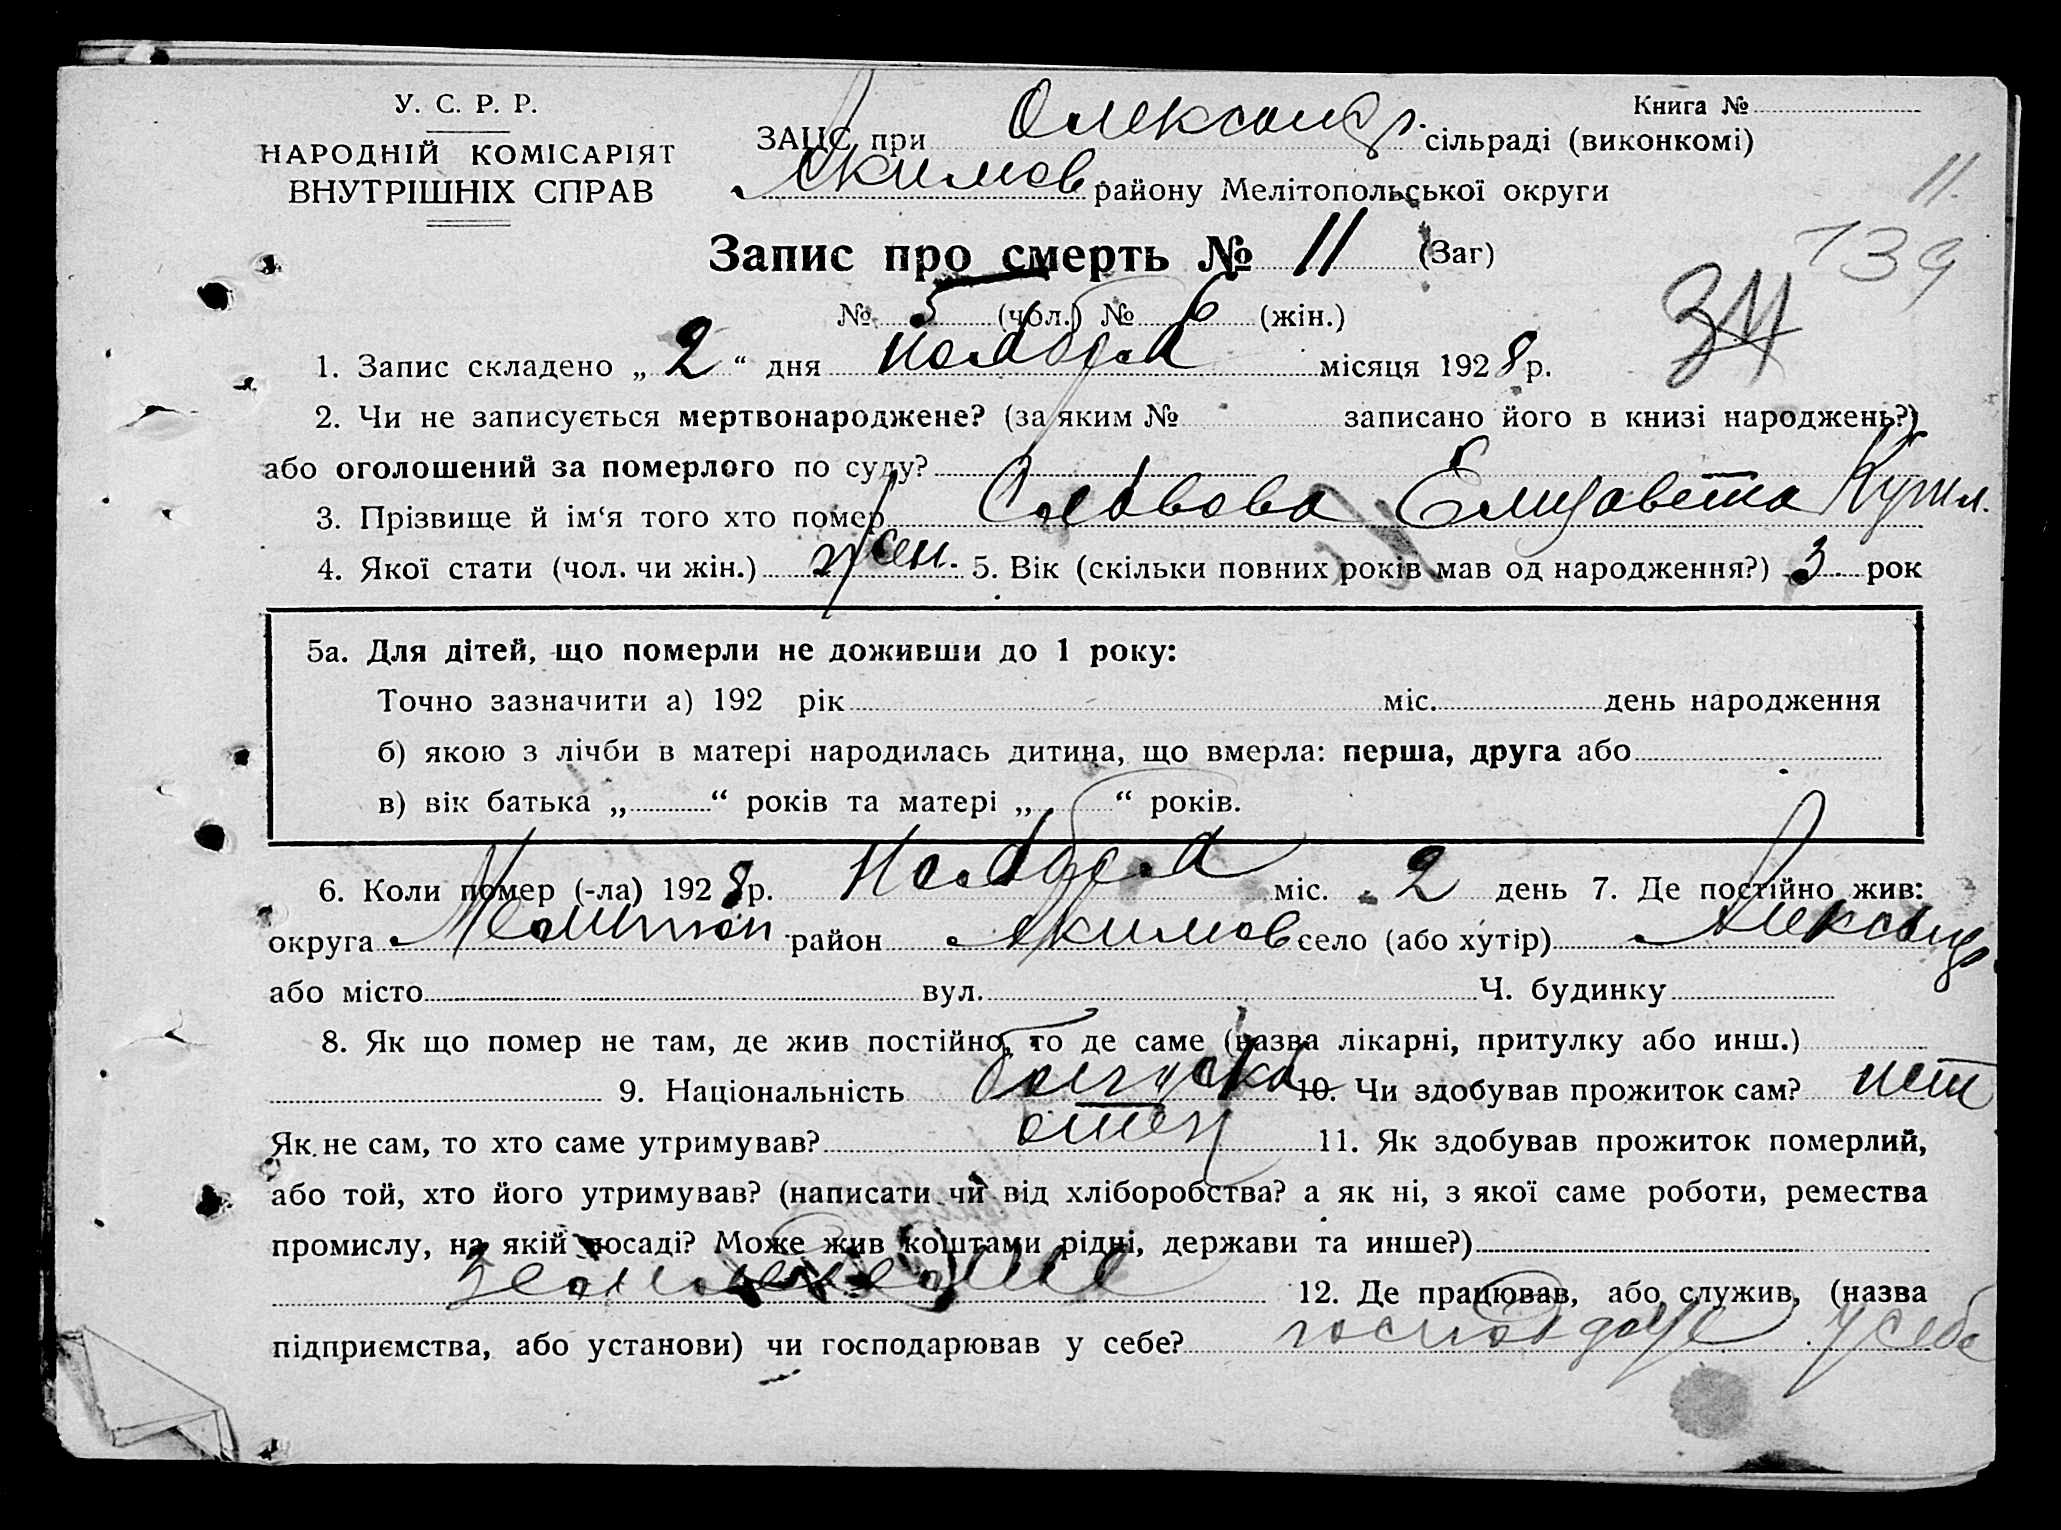 У. С. Р. Р.
НАРОДНІЙ КОМІСАРІЯТ
ВНУТРІШНІХ СПРАВ
Книга №
ЗАЦС при Олександр. сільраді (виконкомі)
Якимов. району Мелітопольської округи
11.
139
Запис про смерть № 11 (Заг)
№ 5 (чол.) № 6 (жін.)
1. Запис складено „ 2 “ дня ноября місяця 1928 р.
2. Чи не записується мертвонароджене? (за яким № записано його в книзі народжень?)
або оголошений за померлого по суду?
3. Прізвище й ім‘я того хто помер Славова Елизавета Кирил.
4. Якої стати (чол. чи жін.) жен. 5. Вік (скільки повних років мав од народження?) 3 рок
5а. Для дітей, що померли не доживши до 1 року:
Точно зазначити а) 192 рік міс. день народження
б) якою з лічби в матері народилась дитина, що вмерла: перша, друга або
в) вік батька „ “ років та матері „ “ років.
6. Коли помер (-ла) 1928 р. Ноября міс. 2 день 7. Де постійно жив:
округа Мелитоп район Якимов село (або хутір) Александр
або місто вул. Ч. будинку
8. Як що помер не там, де жив постійно, то де саме (назва лікарні, притулку або инш.)
9. Національність болгарка 10. Чи здобував прожиток сам? нет
Як не сам, то хто саме утримував? отец 11. Як здобував прожиток померлий,
або той, хто його утримував? (написати чи від хліборобства? а як ні, з якої саме роботи, ремества
промислу, на якій посаді? Може жив коштами рідні, держави та инше?)
земледелие 12. Де працював, або служив, (назва
підприємства, або установи) чи господарював у себе? господарує у себе